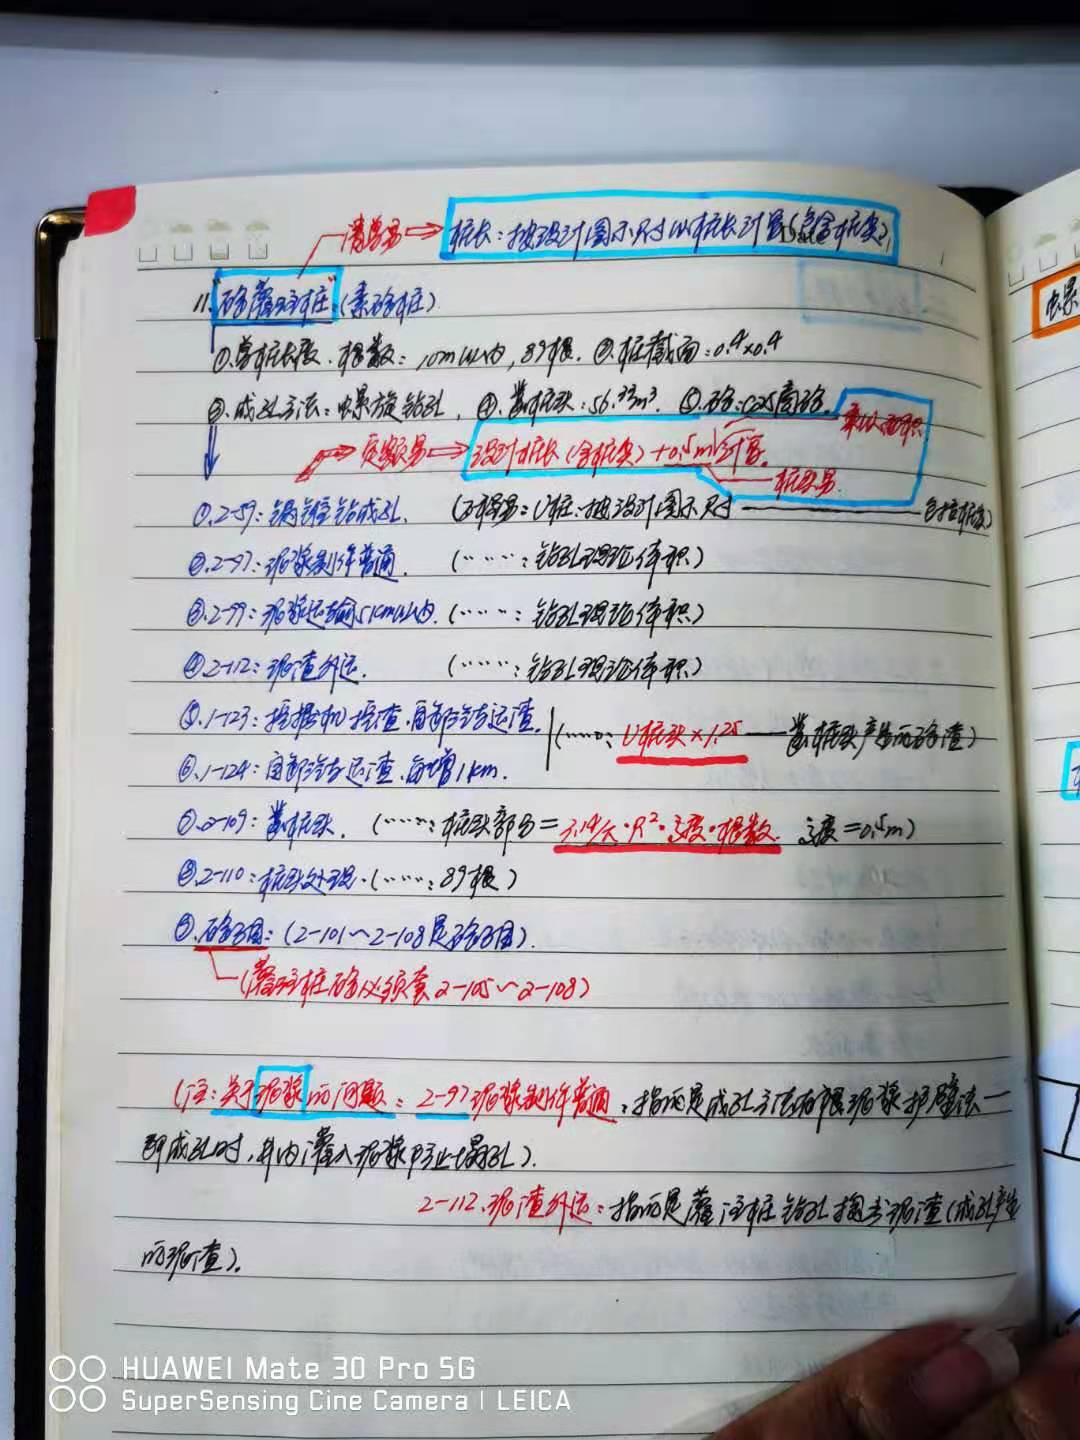 清单量→桩长:按设计图示尺寸以桩长计量(包含桩尖),
11."砼灌注桩"(素砼桩)
①.单桩长度、根数:10m以内,89根. ②.桩截面:0.4×0.4
③.成孔方法:螺旋钻孔. ④.凿桩头:56.33m³. ⑤.砼:C25商砼.
定额量→设计桩长(含桩尖)+0.5m计算. 乘以面积
桩头量.
①.2-89:锅锥钻成孔. (工程量:V桩:按设计图示尺寸——包括桩尖)
②.2-97:泥浆制作普通. (……:钻孔理论体积)
③.2-99:泥浆运输5km以内. (……:钻孔理论体积)
④.2-112:泥渣外运. (……:钻孔理论体积)
⑤.1-123:挖掘机挖渣.自卸汽车运渣.
(……:V桩头×1.25——凿桩头产生的砼渣)
⑥.1-124:自卸汽车运渣.每增1km.
⑦.2-109:凿桩头. (……:桩头部分=3.14·R²·高度·根数. 高度=0.5m)
⑧.2-110:桩头处理.(……:89根)
⑨.砼子目:(2-101~2-108是砼子目).
(灌注桩砼必须套2-105~2-108)
(注:关于泥浆的问题:2-97泥浆制作普通:指的是成孔方法有根泥浆护壁法—
即成孔时,井内灌入泥浆防止塌孔).
2-112.泥渣外运:指的是灌注桩钻孔掏去泥渣(成孔产生
的泥渣).
HUAWEI Mate 30 Pro 5G
SuperSensing Cine Camera | LEICA